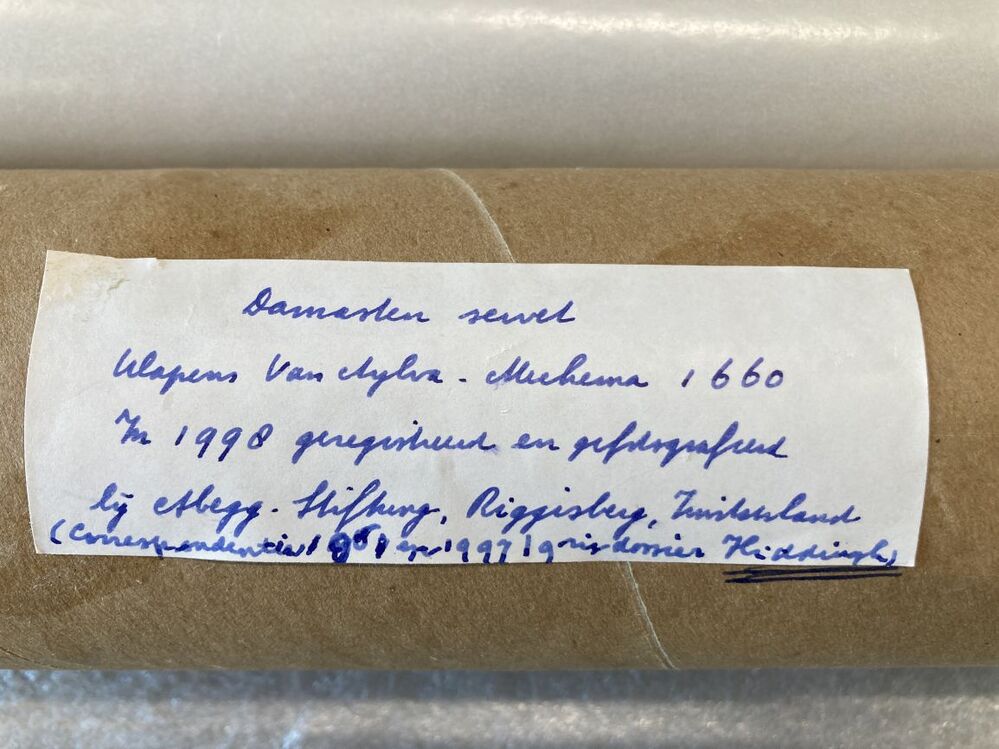 Damasten servet
Wapens Van Aylva - Meckema 1660
In 1998 geregistreerd en gefotografeerd
bij Abegg-Stiftung, Riggisberg, Zwitserland
(Correspondentie 1997 grijs dossier Hiddingh)